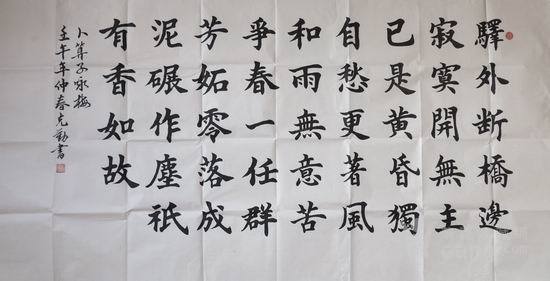 驛外断橋邊
寂寞開無主
已是黄昏獨
自愁更著風
和雨無意苦
爭春一任群
芳妬零落成
泥碾作塵祇
有香如故
卜算子咏梅
壬午年仲春克勤書